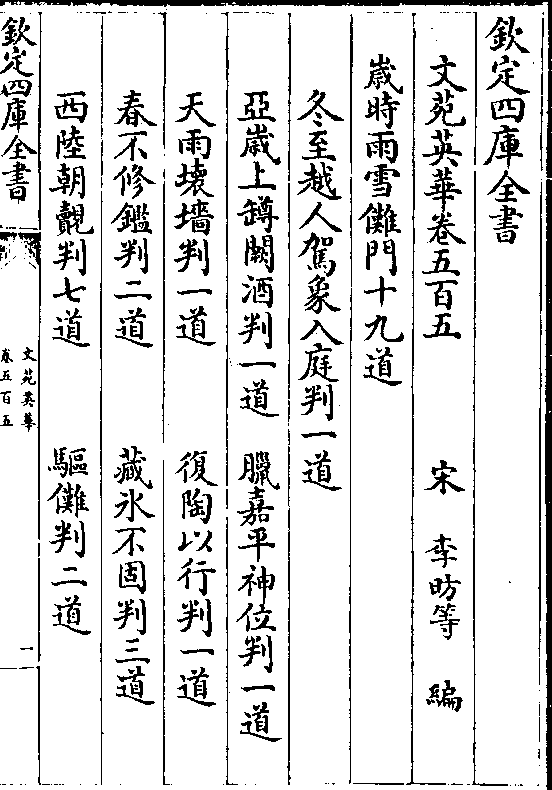 欽定四庫全書
文苑英華卷五百五　宋　李昉等　編
歲時雨雪儺門十九道
冬至越人駕象入庭判一道
亞歲上罇闕酒判一道　臘嘉平神位判一道
天雨壞墻判一道　復陶以行判一道
春不修鑑判二道　藏氷不固判三道
西陸朝覿判七道　驅儺判二道
欽定四庫全書
文苑英華
卷五百五
一